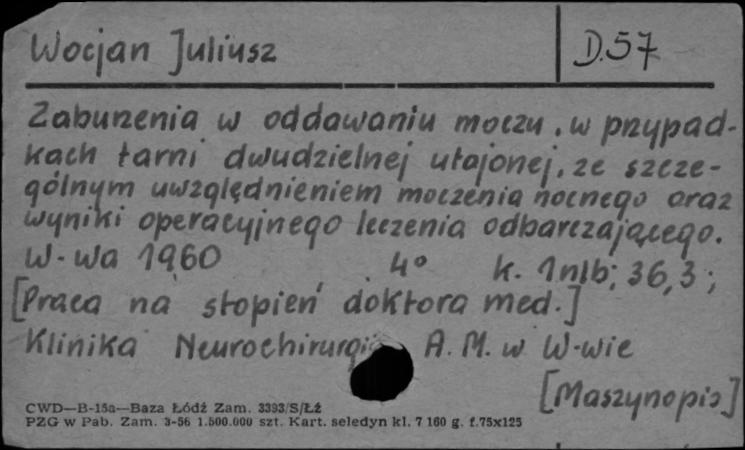 Wocjan Juliusz D.57
Zaburzenia w oddawaniu moczu, w przypad-
kach tarni dwudzielnej utajonej, ze szcze-
gólnym uwzględnieniem moczenia nocnego oraz
wyniki operacyjnego leczenia odbarczającego.
W-wa 1960 4° k. 1nlb; 36,3;
[Praca na stopień doktora med.]
Klinika Neurochirurgii A. M. w W-wie
[Maszynopis]
CWD—B-15a—Baza Łódź Zam. 3393/S/Łź
PZG w Pab. Zam. 3-56 1.500.000 szt. Kart. seledyn kl. 7 160 g. f.75x125